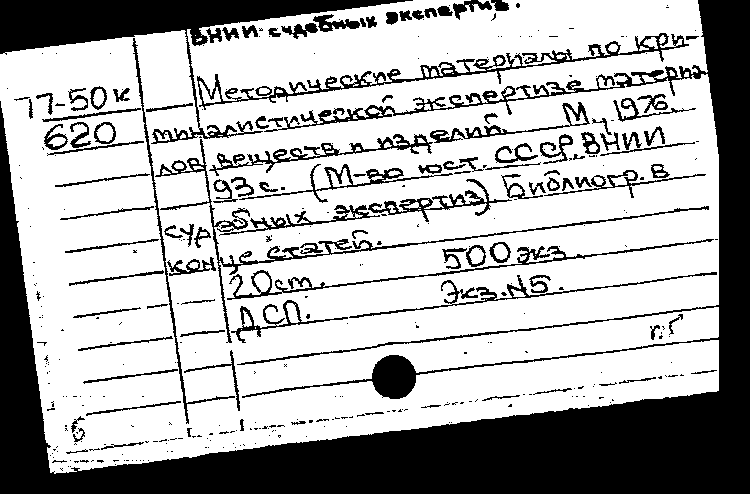 ВНИИ судебных экспертиз.
77-50к Методические материалы по кри-
620 миналистической экспертизе материа-
лов, веществ и изделий. М., 1976.
93с. (М-во юст. СССР. ВНИИ
судебных экспертиз). Библиогр. в
конце статей.
20см. 500 экз.
ДСП. Экз. N5.
п.г
б